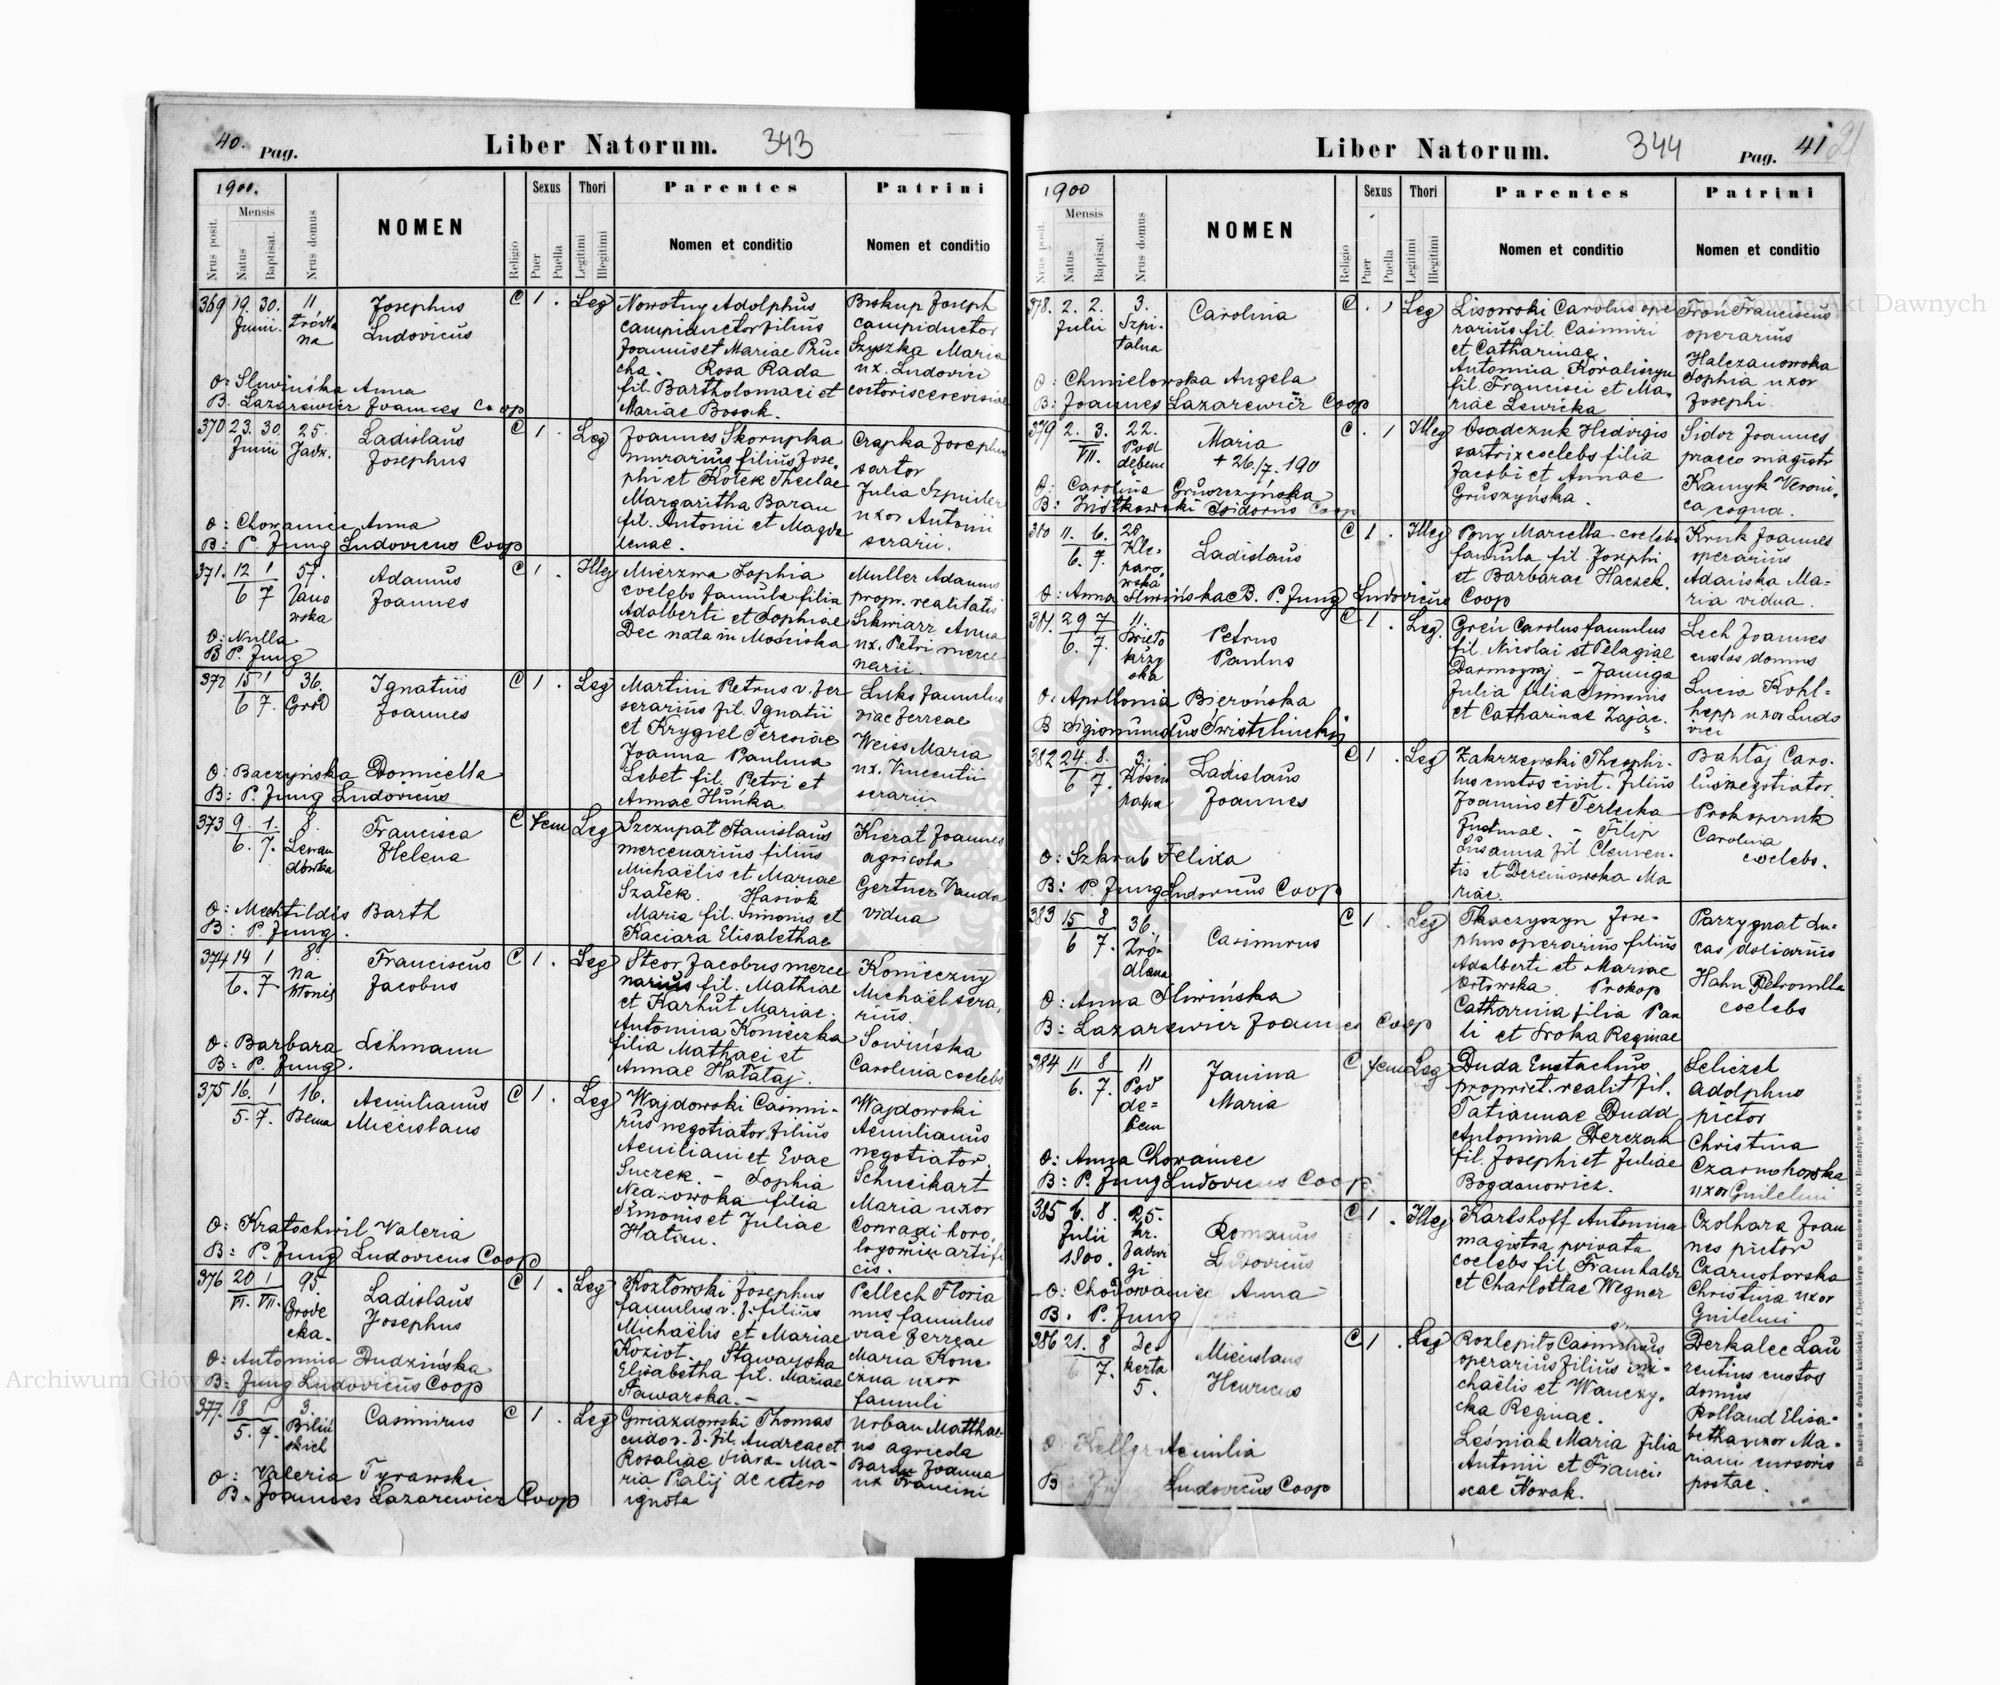 40. Pag. Liber Natorum. 343
1900.
Nrus posit.
Mensis
Natus
Baptisat.
Nrus domus
NOMEN
Religio
Sexus
Puer
Puella
Thori
Legitimi
Illegitimi
Parentes
Nomen et conditio
Patrini
Nomen et conditio
369 19. 30. 11 Josephus C 1 . Leg Nowotny Adolphus Biskup Joseph
Junii. Ludovicus campiductor filius campiductor
na Joannis et Mariae Pru- Szyszka Maria
cha. Rosa Rada ux. Ludovici
O: Sliwińska Anna fil. Bartholomaei et
B. Lazarewicz Joannes Coop Mariae
370 23. 30 25. Ladislaus C 1 . Leg Joannes Skorupka Czapka Josephus
Junii Jadw. Josephus murarius filius Jose- sartor
phi et Kotek Theclae Julia
Margaritha Baran uxor Antonii
O: Chowaniec Anna fil. Antonii et Magda serarii.
B: P. Jung Ludovicus Coop lenae.
371. 12 1 57. Adamus C 1 . Illeg Mierzwa Sophia Muller Adamus
6 7 Joannes coelebs famula filia propr. realitatis
wska Adalberti et Sophiae Skwiarz Anna
O: Nulla Dec nata in Mościska ux. Petri merce
B P. Jung narii.
372 15 1 36. Ignatius C 1 . Leg Martini Petrus v. fer Luks famulus
6 7. Grod Joannes serarius fil. Ignatii viae ferreae
et Krygiel Teresiae Weiss Maria
Joanna Paulina ux. Vincentii
O: Baczyńska Domicella Lebet fil. Petri et serarii
B: P. Jung Ludovicus Annae Huńka.
373 9. 1. 8. Francisca C Fem Leg Szczupat Stanislaus Kierat Joannes
6. 7. Lewan Helena mercenarius filius agricola
dowska Michaëlis et Mariae Gertner Vanda
Szałek. Hasiok vidua
O: Mechtildis Barth Maria fil. Simonis et
B: P. Jung. Kaciara Elisabethae
374 14 1 8. Franciscus C 1 . Leg Steor Jacobus merce Konieczny
6. 7 na Jacobus narius fil. Mathiae Michaël sera,
Błonie et Karhut Mariae. rius.
Antonina Konieczka Sowińska
O: Barbara Lehmann filia Mathaei et Carolina coelebs
B: P. Jung. Annae Hałataj.
375 16. 1 16. Aemilianus C 1 . Leg Wajdowski Casimi- Wajdowski
5. 7. Bema Miecislaus rus negotiator filius Aemilianus
Aemiliani et Evae negotiator
Suczek. - Sophia Schucikart
filia Maria uxor
Simonis et Juliae Conradi horo,
O: Kratochwil Valeria Hatiu. logorum artifi
B: P. Jung Ludovicus Coop cis.
376 20 1 95. Ladislaus C 1 . Leg Kozłowski Josephus Pellech Floria
VI. VII. Grode Josephus famulus v. f. filius nus famulus
cka. Michaëlis et Mariae viae ferreae
Koziot. Stawarska Maria Kone
O: Antonina Dudzińska Elisabetha fil. Mariae czna uxor
B: Jung Ludovicus Coop Stawarska. - famuli
377. 18 1 3. Casimirus C 1 . Leg Gwiazdowski Thomas Urban Matthae
5. 7. Biliń fil. Andreae et us agricola
skich Rosaliae Ma- Baran Joanna
O: Valeria Tyrawska ria Palij de cetero ux Francisci
B. Joannes Lazarewicz Coop ignota
Liber Natorum. 344 Pag. 41
1900
Nrus posit.
Mensis
Natus
Baptisat.
Nrus domus
NOMEN
Religio
Sexus
Puer
Puella
Thori
Legitimi
Illegitimi
Parentes
Nomen et conditio
Patrini
Nomen et conditio
378. 2. 2. 3. Carolina C . 1 Leg Lisowski Carolus ope Iroń Franciscus
Julii Szpi- rarius fil. Casimiri operarius
talna et Catharinae. Halczanowska
Antonina Kovaliszyn Sophia uxor
O: Chmielowska Angela fil. Francisci et Ma, Josephi.
B: Joannes Lazarewicz Coop riae Lewicka
379 2. 3. 22. Maria C . 1 Illeg Osadczuk Hedvigis Sidor Joannes
VII. Pod + 26./7. 190 sartrix coelebs filia praeco magistr
dębem Jacobi et Annae Kamyk Veroni,
O: Carolina Gruszczyńska Gruszyńska. ca cogna.
B: Isidorus Coop
380 11. 6. 28 Ladislaus C 1 . Illeg Pony Mariella coelebs Kruk Joannes
6. 7. Kle- famula fil. Josephi operarius
paro, et Barbarae Haczek. Adamska Ma-
wska ria vidua.
O: Anna Sliwińska B. P. Jung Ludovicus Coop
381. 29 7 11. Petrus C 1 . Leg. Greń Carolus famulus Lech Joannes
6. 7. Paulus fil. Nicolai et Pelagiae custos domus
krzy Darmograj. - Janiga Lucia Kohl-
ska Julia filia Simonis hepp uxor Ludo
O. Apollonia Bierońska et Catharinae Zając. vici
B Sigismundus Świstelnicki
382 24. 8. 3. Ladislaus C 1 . Leg Zakrzewski Theophi- Bahtaj Caro-
6 7. Joannes lus custos civit. filius lus negotiator
Joannis et Terlecka Prokopczuk
Justinae. - Filip Carolina
O: Szkrab Felixa Susanna fil Clemen- coelebs.
B: P. Jung Ludovicus Coop tis et Ma
riae.
383 15 8 36. Casimirus C 1 . Leg Tkaczyszyn Jose- Parzygnat Lu-
6 7. Źró- phus operarius filius cas doliarius
dlana Adalberti et Mariae Hahn Petronilla
O: Anna Sliwińska Orłowska. Prokop coelebs
B: Lazarewicz Joannes Coop Catharina filia Pau
li et Sroka Reginae
384 11 8 11 Janina C fem Leg Duda Eustachius Seliczet
6. 7. Pod Maria propriet. realit fil. Adolphus
dę= Tatiannae Duda pictor
bem Antonina Derczah Christina
O: Anna Chowaniec fil. Josephi et Juliae Czarnohorska
B: P. Jung Ludovicus Coop Bogdanowicz. uxor Guilelmi
385 6. 8. 25. Romanus C 1 . Illeg Karlshoff Antonina Czolhara Joan
Julii kr. Ludovicus magistra privata nes pictor
1900. Jadwi coelebs fil. Czarnohorska
gi et Charlottae Wegner Christina uxor
O: Chodowaniec Anna Guilelmi
B. P. Jung
386 21. 8 Ze- Miecislaus C 1 . Leg Rozlepiło Casimirus Derkalec Lau
6 7. kerta Henricus operarius filius Mi- rentius custos
5. chaëlis et Wanczy, domus
cka Reginae. Rolland Elisa-
O Aemilia Leśniak Maria filia betha uxor Ma-
B Ludovicus Coop Antonii et Franci- riani cursoris
scae Nowak. postae.
Do nabycia w drukarni katolickiej J. Chęcińskiego w zabudowaniu OO. Bernardynów we Lwowie.
Archiwum Główne Akt Dawnych
Archiwum Główne Akt Dawnych